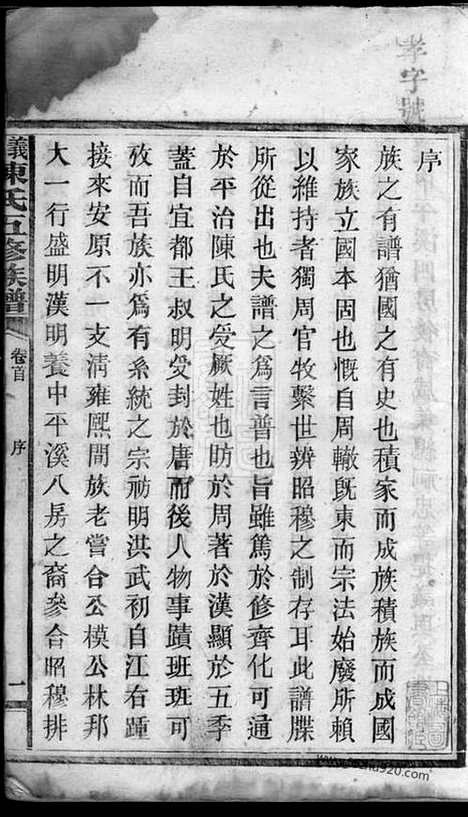 序
族之有譜猶國之有史也積家而成族積族而成國
家族立國本固也慨自周轍旣東而宗法始廢所賴
以維持者獨周官牧繫世辨昭穆之制存耳此譜牒
所從出也夫譜之爲言普也旨雖篤於修齊化可通
於平治陳氏之受厥姓也昉於周著於漢顯於五季
蓋自宜都王叔明受封於唐而後人物事蹟班班可
攷而吾族亦爲有系統之宗祊明洪武初自江右踵
接來安原不一支清雍熙間族老嘗合公模公林邦
大一行盛明漢明養中平溪八房之裔參合昭穆排
義陳氏五修族譜
卷首
序
一
孝字號